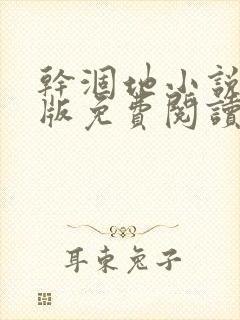 幹涸地小說
版免費閱讀
耳東兔子